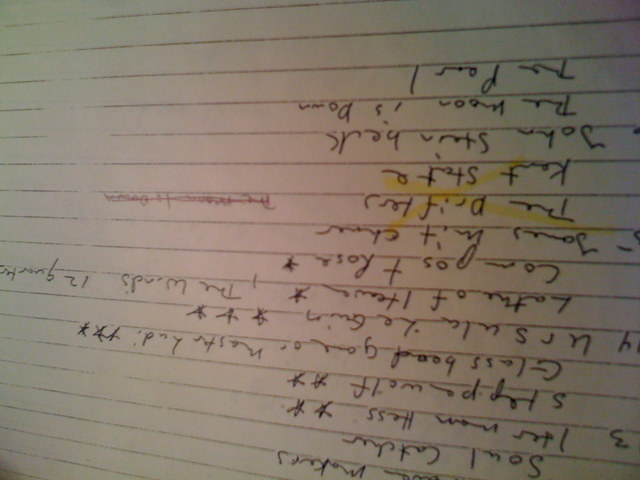 makers
Soul Catcher
3 Herman Hess **
Steppenwolf **
Glass bead game or Master Ludi ***
14 Ursula Le Guin ***
Lathe of Heaven *, The Wind's 12 quarters
Compost Rose *
5- James Mitchner
The Drifters The Moon Is Down
Kent State
John Steinbeck
The Moon is Down
The Pearl